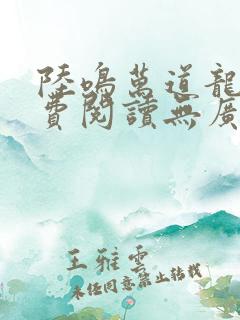 陸鳴萬道龍
費閱讀無廣
王雅雲
未經同意禁止轉載